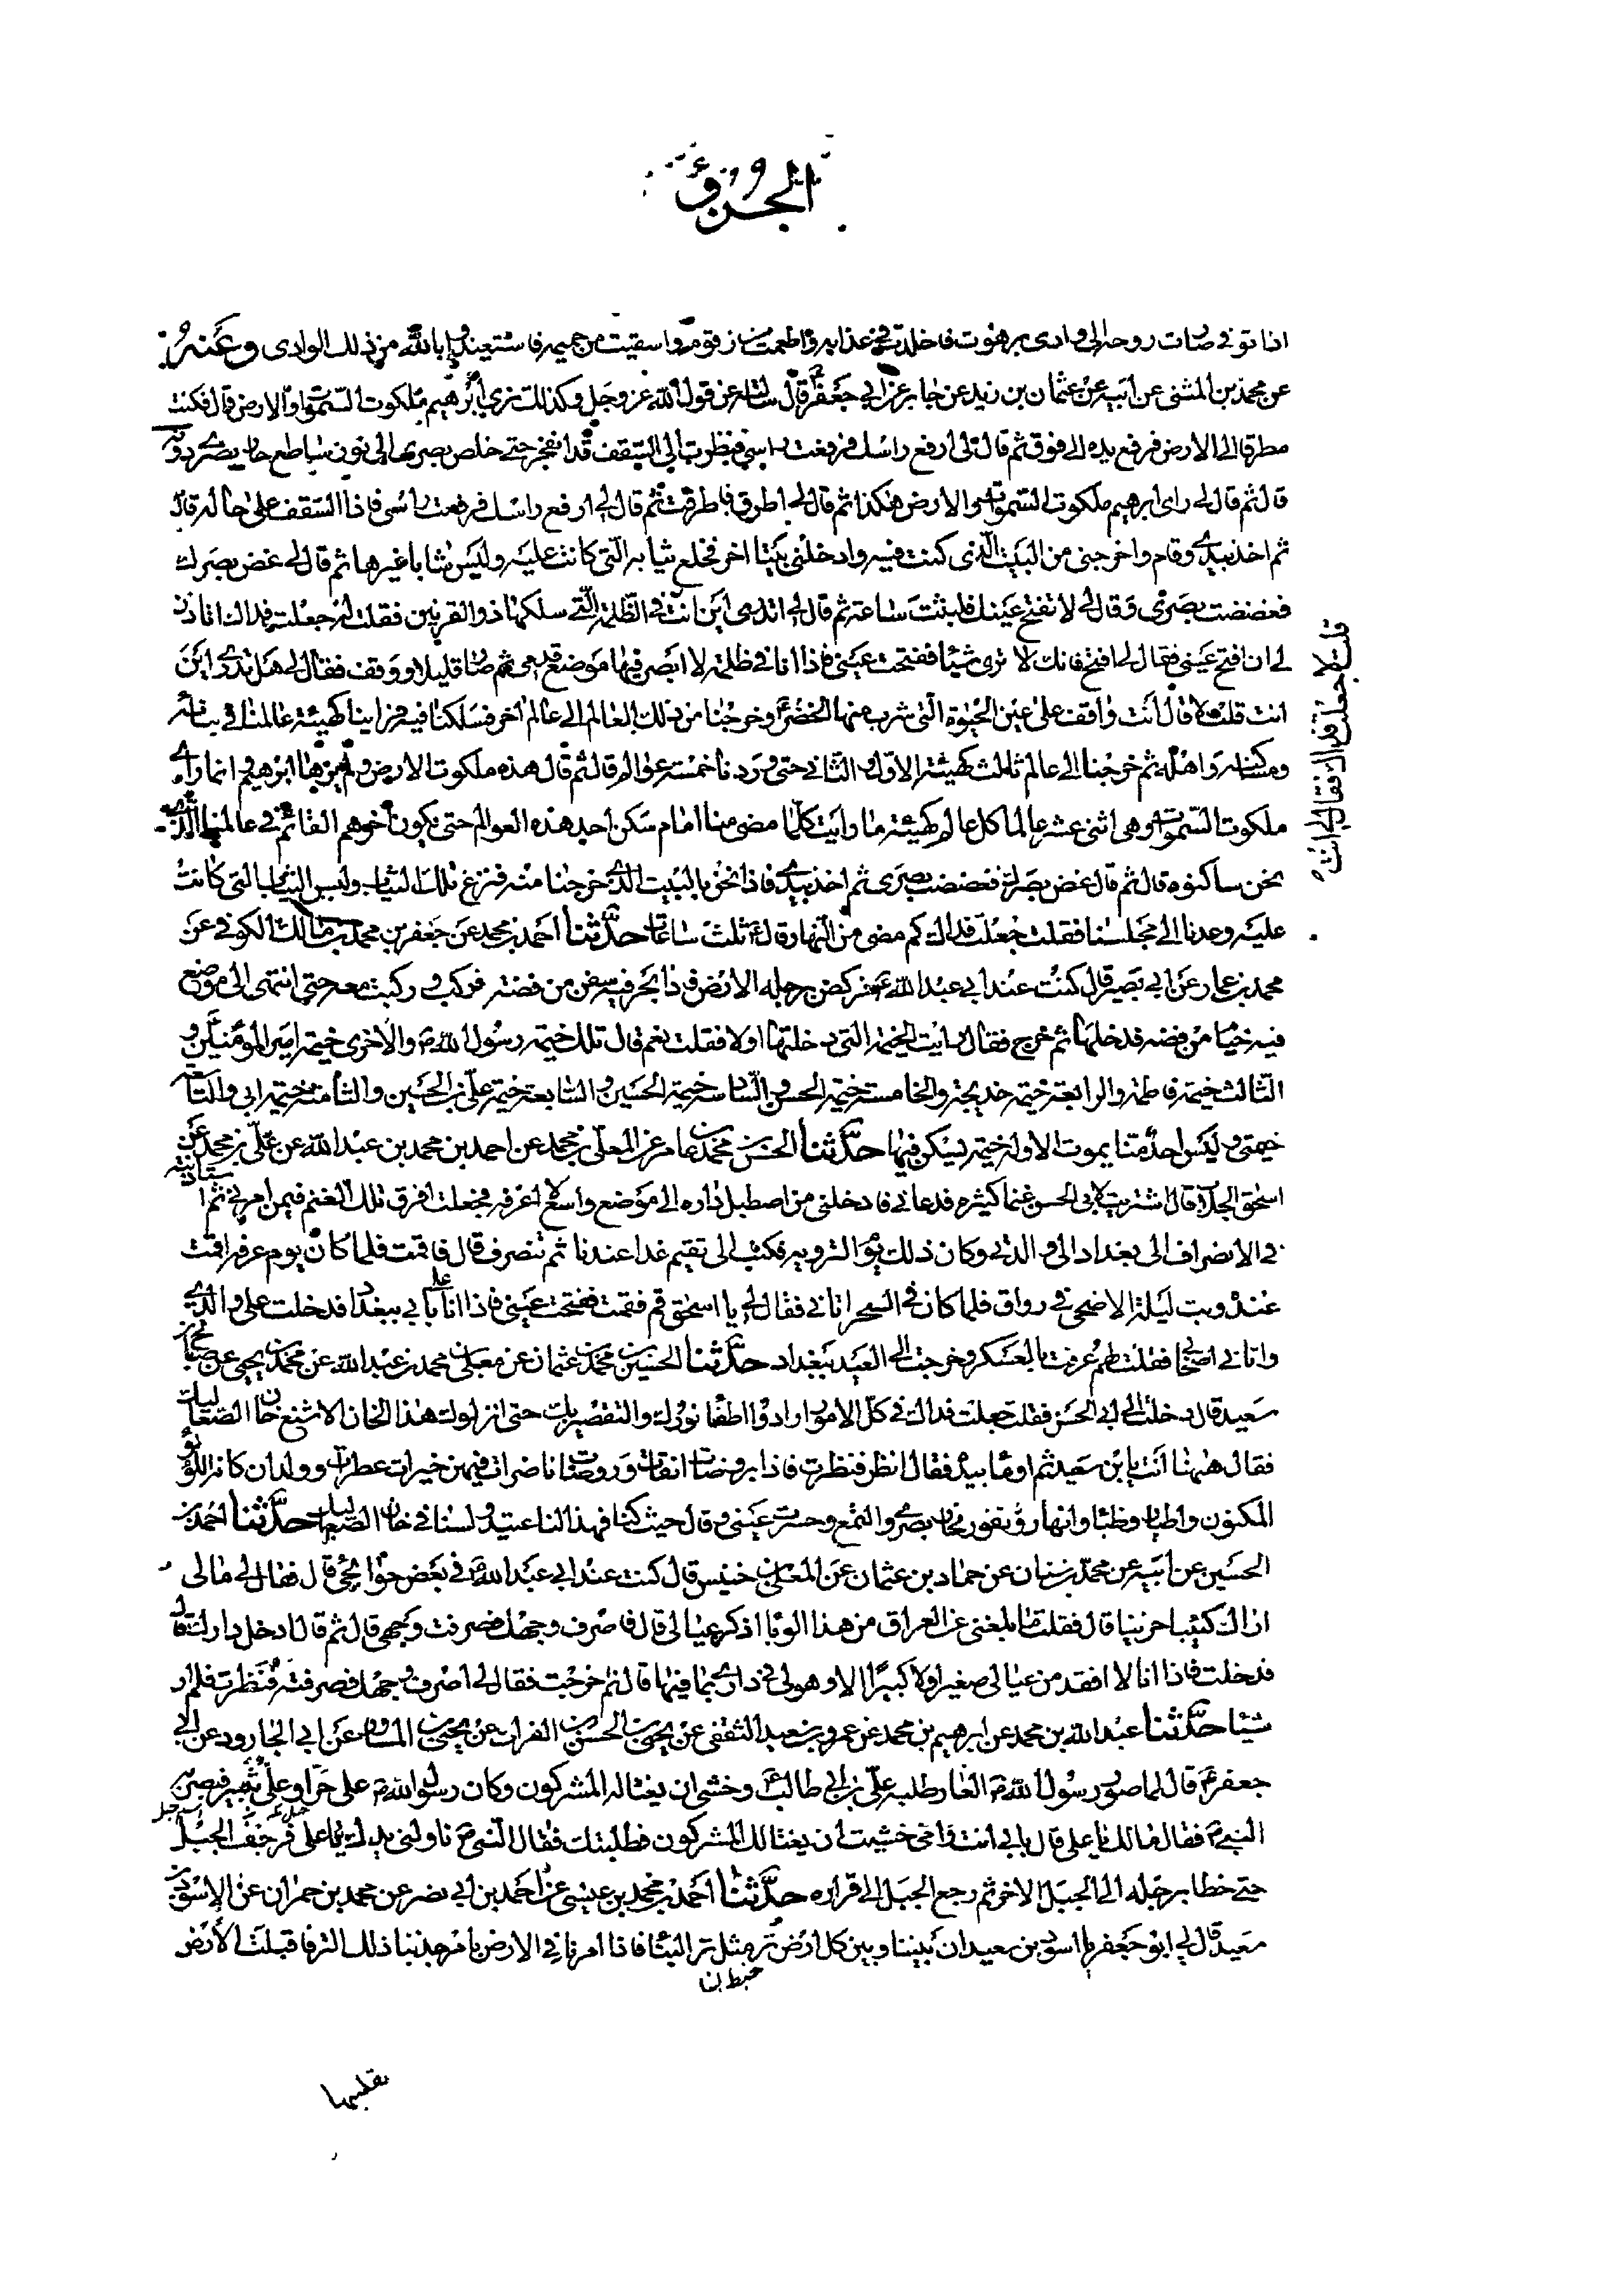 الجزؤ
اذا توفى صارت روحه الى وادى برهوت فاخلدت فى عذابه واطعمت من زقومه واسقيت من حميمه فاستعيذوا بالله من ذلك الوادى وعنه
عن محمد بن المثنى عن ابيه عن عثمان بن زيد عن جابر عن ابى جعفر ع قال سالته عن قول الله عز وجل وكذلك نرى ابرهيم ملكوت السموات والارض قال فكنت
مطرقا الى الارض فرفع يده الى فوق ثم قال لى ارفع راسك فرفعت راسى فنظرت الى السقف قد انفجر حتى خلص بصرى الى نور ساطع حار بصرى دونه
قال ثم قال لى راى ابرهيم ملكوت السموات والارض هكذا ثم قال لى اطرق فاطرقت ثم قال لى ارفع راسك فرفعت راسى فاذا السقف على حاله قال
ثم اخذ بيدى وقام واخرجنى من البيت الذى كنت فيه وادخلنى بيتا اخر فخلع ثيابه التى كانت عليه ولبس ثيابا غيرها ثم قال لى غض بصرك
فغضضت بصرى وقال لى لا تفتح عينك فلبثت ساعة ثم قال لى اتدرى اين انت فى الظلمة التى سلكها ذو القرنين فقلت له جعلت فداك اتاذن
لى ان افتح عينى فقال لى افتح فانك لا ترى شيئا ففتحت عينى فاذا انا فى ظلمة لا ابصر فيها موضع قدمى ثم صار قليلا ووقف فقال لى هل تدرى اين
انت قلت لا قال انت واقف على عين الحيوة التى شرب منها الخضر ع وخرجنا من ذلك العالم الى عالم اخر فسلكنا فيه فراينا كهيئة عالمنا فى بنائه
ومساكنه واهله ثم خرجنا الى عالم ثالث كهيئة الاول والثانى حتى وردنا خمسة عوالم قال ثم قال هذه ملكوت الارض ولم يرها ابرهيم وانما راى
ملكوت السموات وهى اثنى عشر عالما كل عالم كهيئة ما رايت كلما مضى منا امام سكن احد هذه العوالم حتى يكون اخرهم القائم فى عالمنا الذى
نحن ساكنوه قال ثم قال غض بصرك فغضضت بصرى ثم اخذ بيدى فاذا نحن بالبيت الذى خرجنا منه فنزع تلك الثياب ولبس الثياب التى كانت
عليه وعدنا الى مجلسنا فقلت جعلت فداك كم مضى من النهار قال ع ثلث ساعات حدثنا احمد بن محمد عن جعفر بن محمد بن مالك الكوفى عن
محمد بن عمار عن ابى بصير قال كنت عند ابى عبد الله ع فركض برجله الارض فاذا بحر فيه سفن من فضة فركب وركبت معه حتى انتهى الى موضع
فيه خيام من فضة فدخلها ثم خرج فقال رايت الخيمة التى دخلتها اولا فقلت نعم قال تلك خيمة رسول الله ص والاخرى خيمة امير المؤمنين و
الثالثة خيمة فاطمة والرابعة خيمة خديجة والخامسة خيمة الحسن والسادسة خيمة الحسين والسابعة خيمة على بن الحسين والثامنة خيمة ابى والتاسعة
خيمتى وليس احد منا يموت الا وله خيمة يسكن فيها حدثنا الحسن بن محمد بن عامر عن المعلى بن محمد عن احمد بن محمد بن عبد الله عن على بن محمد عن
اسحق الجلاب قال اشتريت لابى الحسن غنما كثيرة فدعانى فادخلنى من اصطبل داره الى موضع واسع لا اعرفه فجعلت افرق تلك الغنم فيمن امرنى ثم استاذنته
فى الانصراف الى بغداد الى والدتى وكان ذلك يوم التروية فكتب الى تقيم غدا عندنا ثم تنصرف قال فاقمت فلما كان يوم عرفة اقمت
عنده وبت ليلة الاضحى فى رواق فلما كان فى السحر اتانى فقال لى يا اسحق قم فقمت ففتحت عينى فاذا انا على بابى ببغداد فدخلت على والدى
واتانى اصحابى فقلت لهم عرفت بالعسكر وخرجت الى العيد ببغداد حدثنا الحسين بن محمد بن عثمان عن معلى بن محمد بن عبد الله عن محمد بن يحيى عن صالح بن
سعيد قال دخلت الى ابى الحسن فقلت جعلت فداك فى كل الامور ارادوا اطفا نورك والتقصير بك حتى انزلوك هذا الخان الاشنع خان الصعاليك
فقال ههنا انت يا بن سعيد ثم اوما بيده فقال انظر فنظرت فاذا بروضات انقات وروضات ناضرات فيهن خيرات عطرات وولدان كانهن اللؤلؤ
المكنون واطيار وظباء وانهار تفور فحار بصرى والتمع وحسرت عينى وقال حيث كنا فهذا لنا عتيد ولسنا فى خان الصعاليك حدثنا احمد بن
الحسين عن ابيه عن محمد بن سنان عن حماد بن عثمان عن المعلى بن خنيس قال كنت عند ابى عبد الله ع فى بعض حوائجى قال فقال لى مالى
اراك كئيبا حزينا قال فقلت ما بلغنى عن العراق من هذا الوبا اذكر عيالى قال فاصرف وجهك فصرفت وجهى قال ثم قال ادخل دارك قال
فدخلت فاذا انا لا افقد من عيالى صغيرا ولا كبيرا الا وهو لى فى دارى بما فيها قال ثم خرجت فقال لى اصرف وجهك فصرفته فنظرت فلم ار
شيئا حدثنا عبد الله بن محمد عن ابرهيم بن محمد عن عمرو بن سعيد الثقفى عن يحيى بن الحسن بن الفرات عن يحيى بن المساور عن ابى الجارود عن ابى
جعفر ع قال لما صعد رسول الله ص الغار طلبه على بن ابى طالب ع وخشى ان يغتاله المشركون وكان رسول الله ص على حرا وعلى بثبير فبصر به
النبى ص فقال مالك يا على قال بابى انت وامى خشيت ان يغتالك المشركون فطلبتك فقال النبى ص ناولنى يدك يا على فرجف الجبل
حتى خطا برجله الى الجبل الاخر ثم رجع الجبل الى قراره حدثنا احمد بن محمد بن عيسى عن احمد بن ابى نصر عن محمد بن حمران عن الاسود بن
سعيد قال لى ابو جعفر يا اسود بن سعيد ان بيننا وبين كل ارض تر مثل تر البنا فاذا امرنا فى الارض بامر جذبنا ذلك التر فاقبلت الارض
قلت لا جعلت فداك فقال لى انت
بقليبها